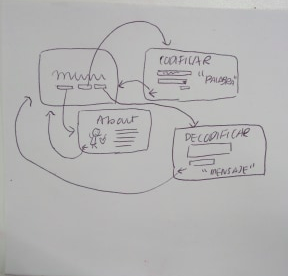 menu
CODIFICAR
"PALABRA"
About
DECODIFICAR
"MENSAJE"